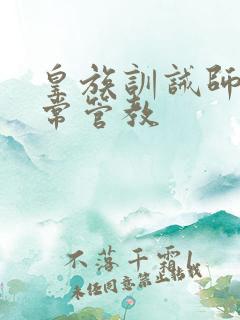 皇族訓誡師
常管教
不落千霜1
未经同意禁止转载